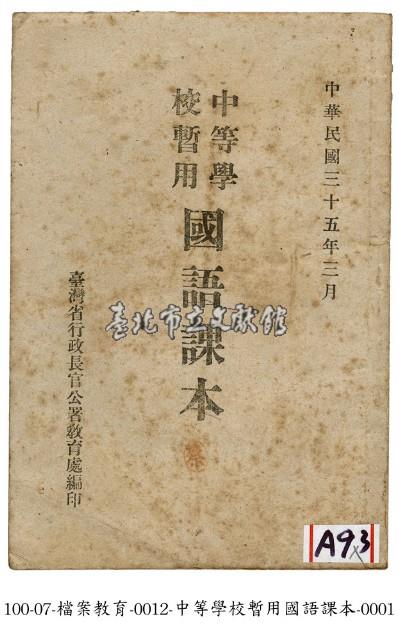 中華民國三十五年三月
中等學
校暫用
國語課本
臺灣省行政長官公署教育處編印
臺北市立文獻館
A93
100-07-檔案教育-0012-中等學校暫用國語課本-0001